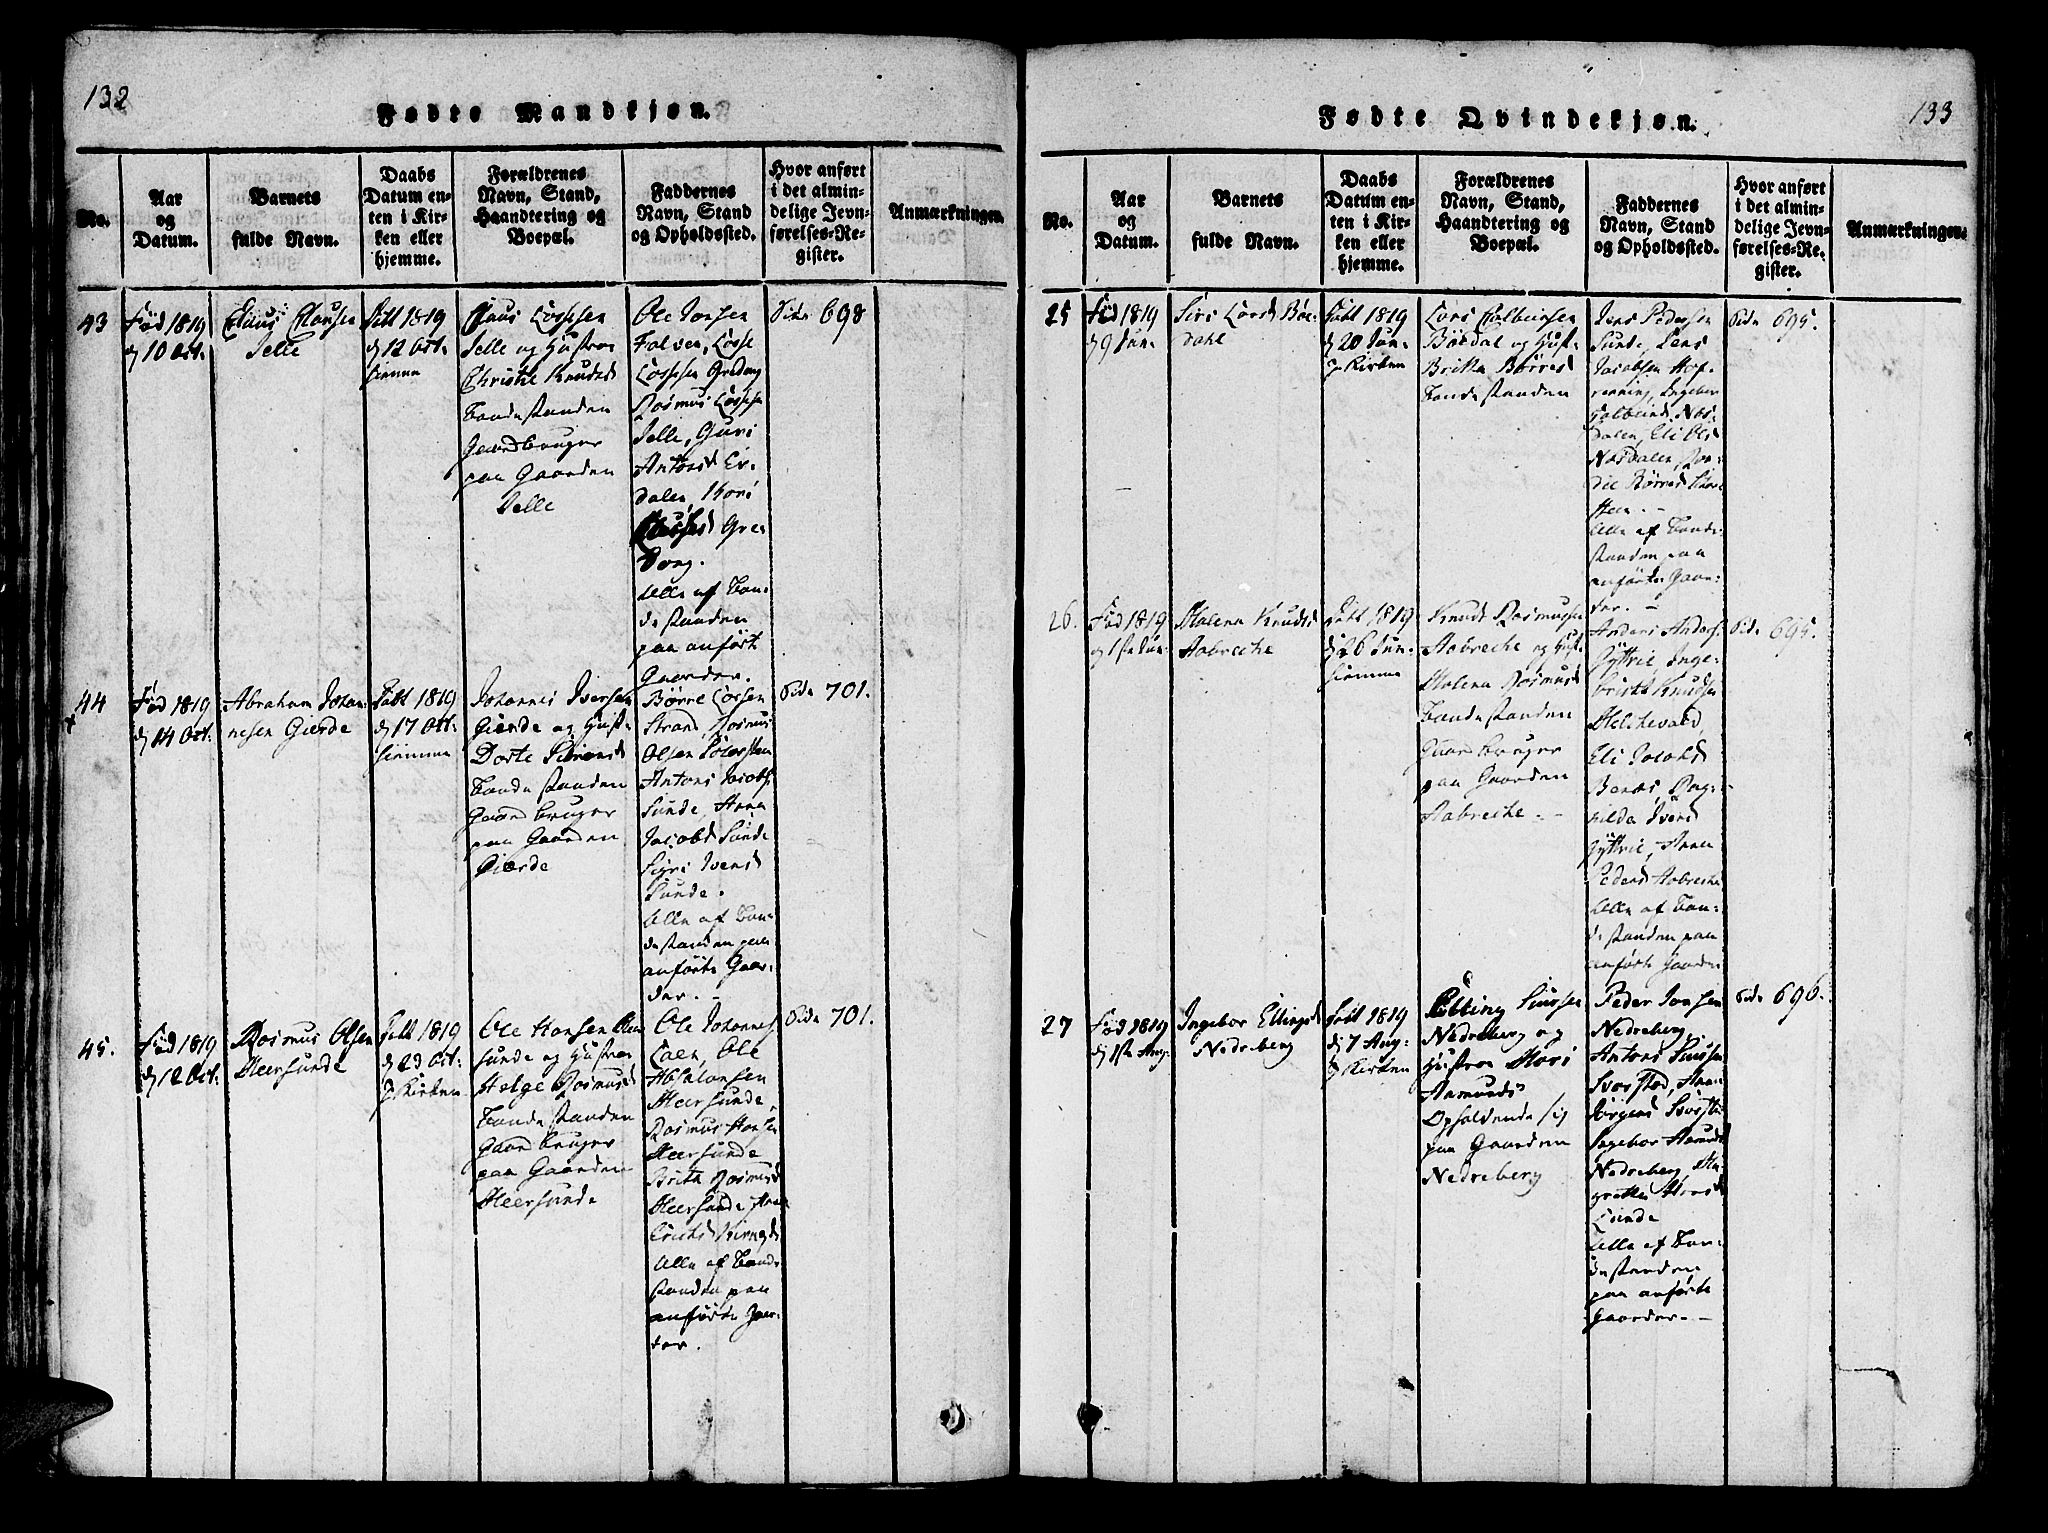 132
Fødte Mandkjøn.
No.
Aar
og
Datum.
Barnets
fulde Navn.
Daabs
Datum en-
ten i Kir-
ken eller
hjemme.
Forældrenes
Navn, Stand,
Haandtering og
Boepæl.
Faddernes
Navn, Stand
og Opholdssted.
Hvor anført
i det almin-
delige Jevn-
førelses-Re-
gister.
Anmærkninger.
43
Fød 1819
d 10 Oct.
Claus Clausen
Selle
Døbt 1819
d 12 Oct.
hiemme
Claus Lassesen
Selle og Hustrue
Christie Knudsd
Bondestanden
Gaardbruger
paa Gaarden
Selle
Ole Jonsen
Lasse
Rasmus
Selle, Guri
Antonsd Er-
dalen, Kari
Alle af Bon-
destanden
paa anført
Gaarder.
Side 698
44
Fød 1819
d 14 Oct.
Abraham Johan-
nesen Gierde
Døbt 1819
d 17 Oct.
hiemme
Johannes Iversen
Gierde og Hust-
Dorte
Bondestanden
Gaardbruger
paa Gaarden
Gierde
Børre Larsen
Strand, Rasmus
Olsen
Antoni Jacobs
Sunde, Anna
Jacobsd Sunde
Siri Iversd
Sunde.
Alle af Bon-
destanden paa
anførte Gaar-
der. -
Side 701.
45.
Fød 1819
d 12 Oct.
Rasmus Olsen
Meersunde
Døbt 1819
d 23 Oct.
i Kirken
Ole Hansen
sunde og Hustrue
Helge Rasmusd
Bondestanden
Gaardbruger
paa Gaarden
Meersunde
Ole Johannes
Loen, Ole
Meersunde,
Rasmus Hansen
Meersunde
Brita Rasmusd
Meersunde, Anna
Alle af Bonde
standen paa
anførte Gaar-
der.
Side 701.
133
Fødte Qvindekjøn.
No.
Aar
og
Datum.
Barnets
fulde Navn.
Daabs
Datum en-
ten i Kir-
ken eller
hjemme.
Forældrenes
Navn, Stand,
Haandtering og
Boepæl.
Faddernes
Navn, Stand
og Opholdssted.
Hvor anført
i det almin-
delige Jevn-
førelses-Re-
gister.
Anmærkninger.
25
Fød 1819
d 9 Jun.
Siri Larsd Bøe-
dahl
Døbt 1819
d 20 Jun.
i Kirken
Lars Colbeinsen
Bøedal og Hust-
Britha Børresd
Bondestanden
Jens Pedersen
Sunde, Jens
Jacobsen Hof-
renning, Ingebor
Nos-
dalen, Eli Olsd
Nosdalen,
Børresd
Alle af Bonde-
standen paa
anførte Gaar-
der. -
Side 695.
26.
Fød 1819
Malena Knudsd
Aabrecke
Døbt 1819
d 26 Jun.
hiemme
Knudt Rasmussen
Aabrecke og Hust-
Malena Rasmusd
Bondestanden
Gaardbruger
paa Gaarden
Aabrecke. -
Anders Anders.
Gyttrie, Inge-
brigt Knudsen
Melchevold,
Eli Jacobsd
Benes, Rag-
nilda Iversd
Gyttrie, Anna
Pedersd Aabrecke
Alle af Bon-
destanden paa
anførte Gaarder
Side 695.
27
Fød 1819
d 1ste Aug.
Ingebor Ellingsd
Nedreberg
Døbt 1819
d 7 Aug.
i Kirken
Elling Simsen
Nedreberg og
Hustrue Mari
Aamundsd
Opholdende sig
paa Gaarden
Nedreberg
Peder Jonsen
Nedreberg,
Antoni Simsen
Svorstad, Anna
Jørgensd
Ingebor Aamundsd
Nedreberg, Ma-
grethe
Loende
Alle af Bon-
destanden
paa anførte
Gaarder. -
Side 696.